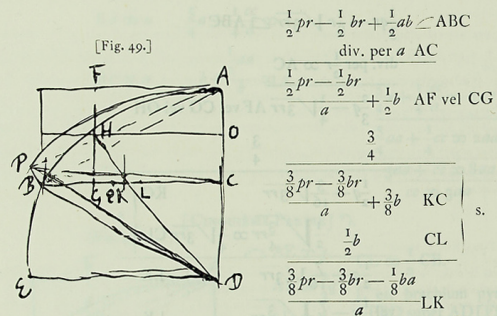 [Fig. 49.]
F A
H O
P
B G K L C
E D
½ pr — ½ br + ½ ab ⌓ ABC
div. per a AC
(½ pr — ½ br)/a + ½ b AF vel CG
3/4
(⅜ pr — ⅜ br)/a + ⅜ b KC
½ b CL
s.
(⅜ pr — ⅜ br — ⅛ ba)/a LK